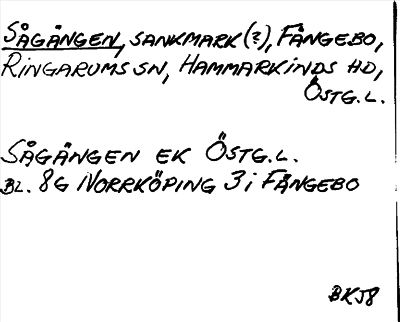 SÅGÄNGEN, SANKMARK(?), FÅNGEBO,
RINGARUMS SN, HAMMARKINDS HD,
ÖSTG.L.
SÅGÄNGEN EK ÖSTG.L.
BL. 8G NORRKÖPING 3i FÅNGEBO
BKJ8